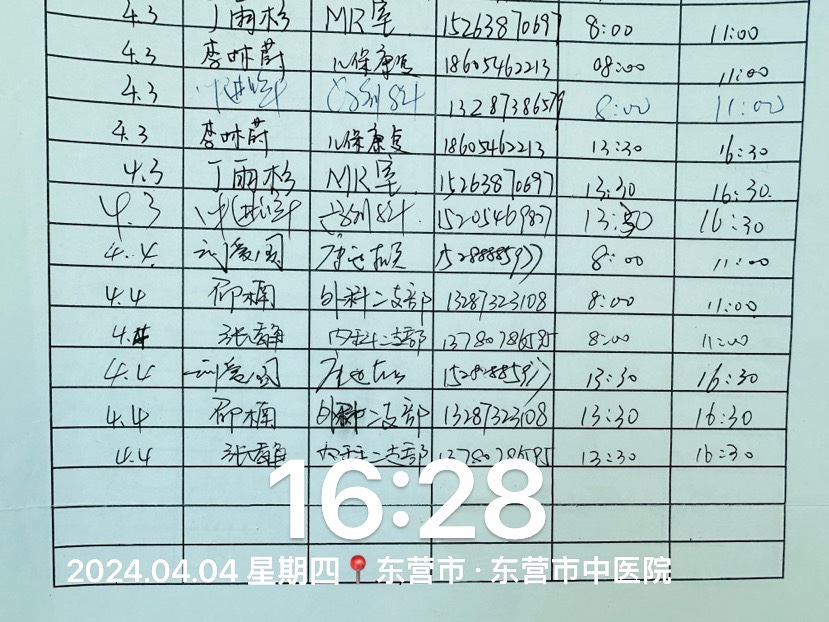 4.3 丁雨杉 MR室 15263870697 8:00 11:00
4.3 李咏蔚 儿保康复 18605462213 08:00 11:00
4.3 13287386579 8:00 11:00
4.3 李咏蔚 儿保康复 18605462213 13:30 16:30
4.3 丁雨杉 MR室 15263870697 13:30 16:30
4.3 15205469807 13:30 16:30
4.4 8:00 11:00
4.4 邵楠 外科二支部 13287323108 8:00 11:00
4.4 张静 内科二支部 13780786595 8:00 11:00
4.4 13:30 16:30
4.4 邵楠 外科二支部 13287323108 13:30 16:30
4.4 张静 内科二支部 13780786595 13:30 16:30
16:28
2024.04.04 星期四 东营市·东营市中医院